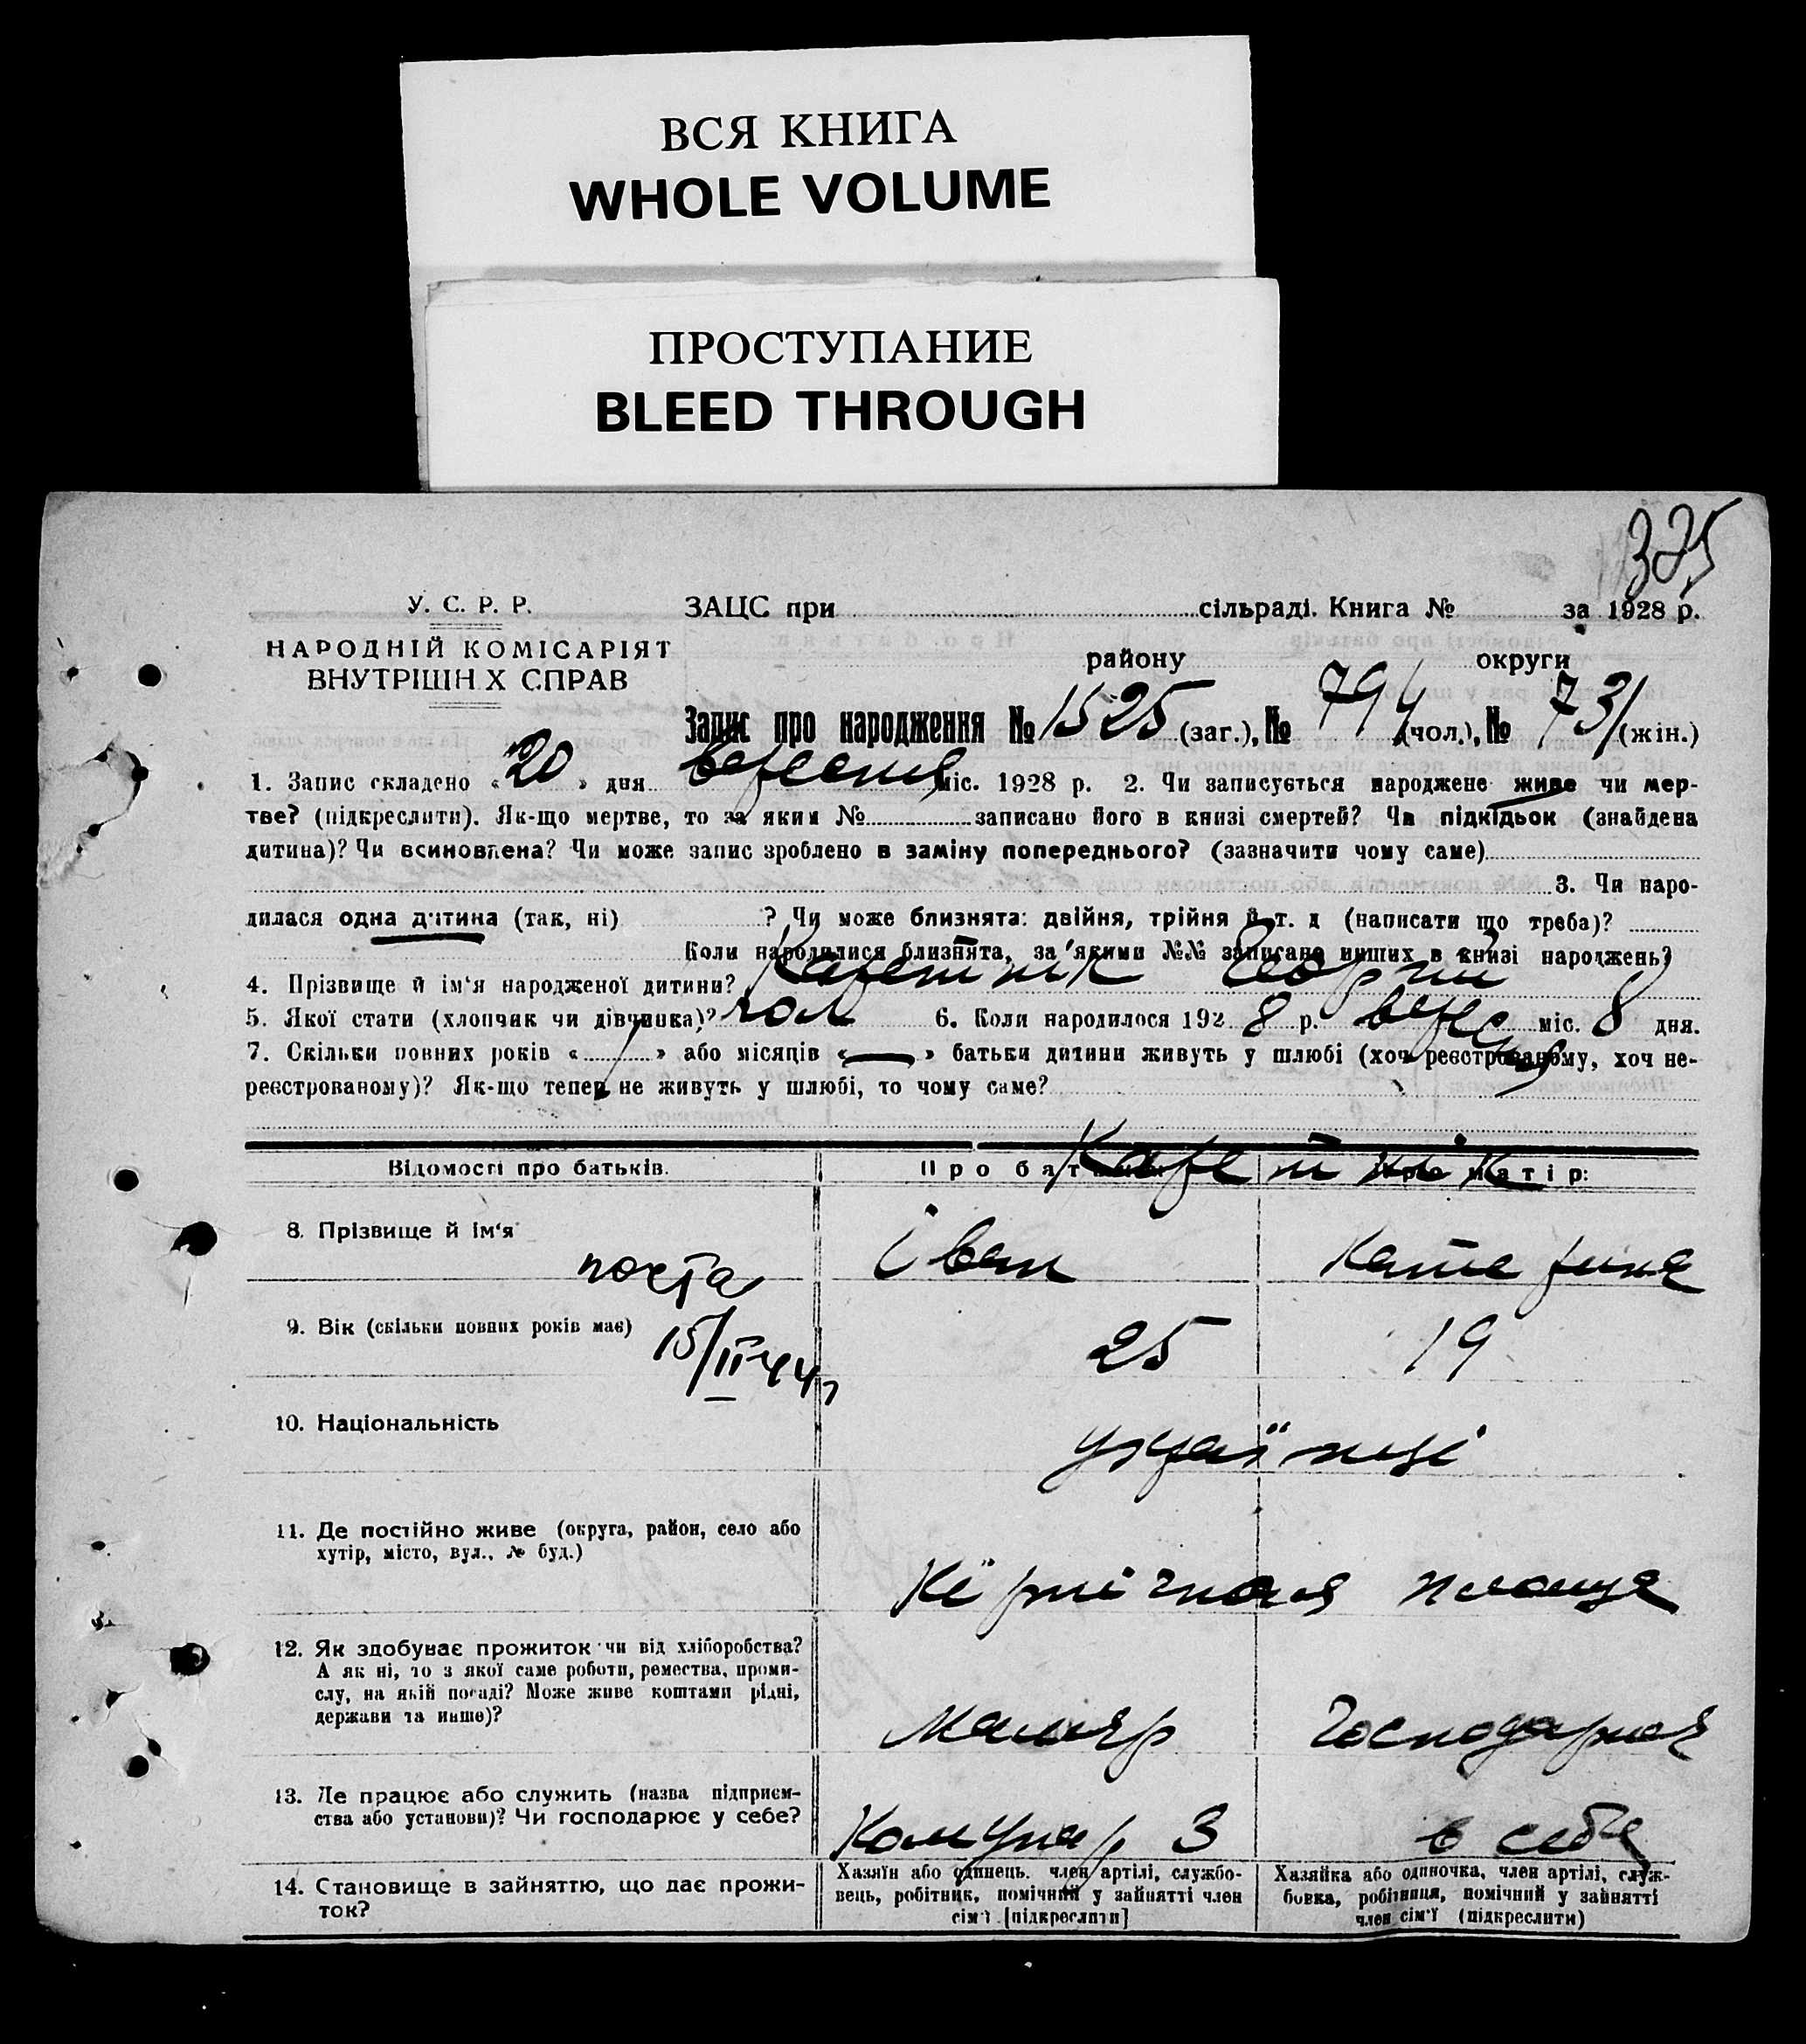 ВСЯ КНИГА
WHOLE VOLUME
ПРОСТУПАНИЕ
BLEED THROUGH
325
У. С. Р. Р.
НАРОДНІЙ КОМІСАРІЯТ
ВНУТРІШН Х СПРАВ
ЗАЦС при сільраді. Книга № за 1928 р.
району округи
Запис про народження № 1525 (заг.), № 794 (чол.), № 731 (жін.)
1. Запис складено « 20 » дня вересня міс. 1928 р. 2. Чи записується народжене живе чи мер-
тве? (підкреслити). Як-що мертве, то за яким № записано його в книзі смертей? Чи підкідьок (знайдена
дитина)? Чи всиновлена? Чи може запис зроблено в заміну попереднього? (зазначити чому саме)
3. Чи наро-
дилася одна дитина (так, ні) ? Чи може близнята: двійня, трійня й т. д (написати що треба)?
Коли народилися близнята, за якими №№ записано инших в книзі народжень?
4. Прізвище й ім'я народженої дитини? Георгий
5. Якої стати (хлопчик чи дівчинка)? чол 6. Коли народилося 192 8 р. верес міс. 8 дня.
7. Скільки повних років « 1 » або місяців « — » батьки дитини живуть у шлюбі (хоч реєстрованому, хоч не-
реєстрованому)? Як-що тепер не живуть у шлюбі, то чому саме?
Відомості про батьків. Про батька: Про матір:
8. Прізвище й ім'я Іван Катерина
9. Вік (скільки повних років має) 15/II 44 25 19
10. Національність українці
11. Де постійно живе (округа, район, село або
хутір, місто, вул., № буд.)
площа
12. Як здобуває прожиток чи від хліборобства?
А як ні, то з якої саме роботи, ремества, проми-
слу, на якій посаді? Може живе коштами рідні,
держави та инше)?
маляр Господарня
13. Де працює або служить (назва підприєм-
ства або установи)? Чи господарює у себе?
Комунар 3 в себе
14. Становище в зайняттю, що дає прожи-
ток?
Хазяїн або одинець. член артілі, службо-
вець, робітник, помічний у зайнятті член
сім'ї [підкреслити]
Хазяйка або одиночка, член артілі, служ-
бовка, робітниця, помічний у зайнятті
член сім'ї (підкреслити)